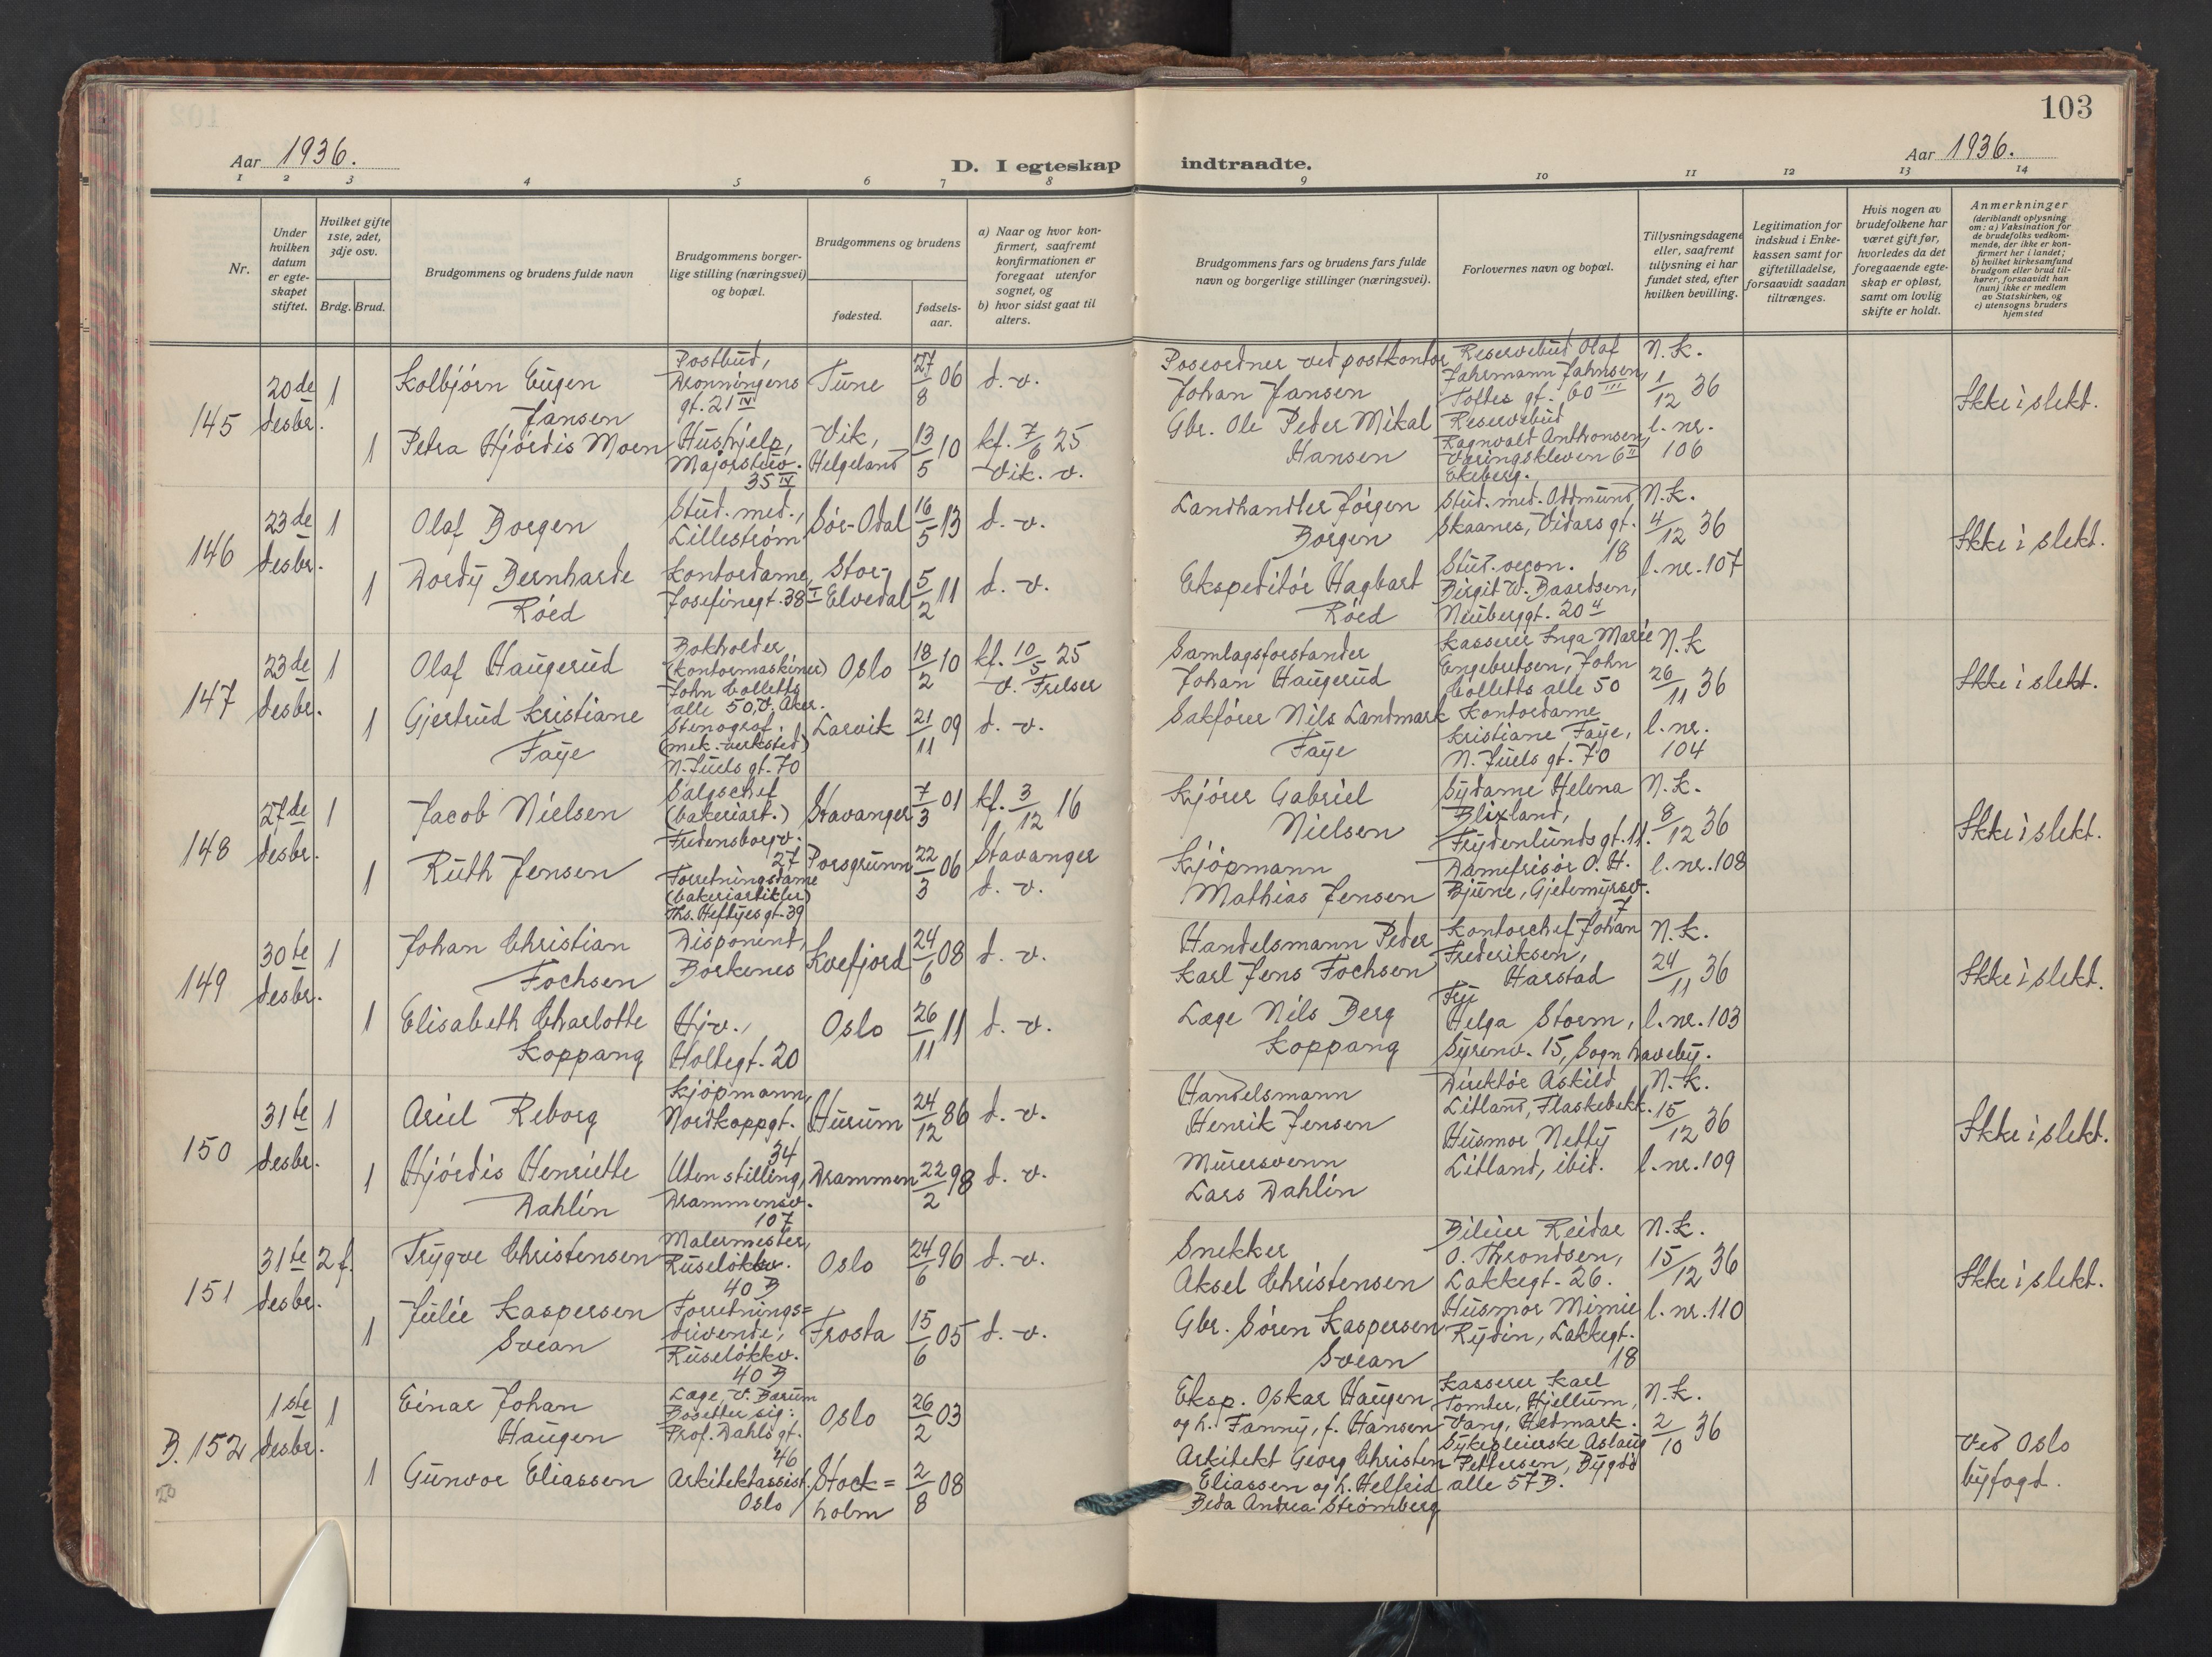 103
Aar 1936.
D. I egteskap indtraadte.
Aar 1936.
1 2 3 4 5 6 7 8 9 10 11 12 13 14
Nr.
Under hvilken datum er egteskapet stiftet.
Hvilket gifte 1ste, 2det, 3dje osv.
Brdg. Brud.
Brudgommens og brudens fulde navn
Brudgommens borgerlige stilling (næringsvei) og bopæl.
Brudgommens og brudens
fødested.
fødselsaar.
a) Naar og hvor konfirmert, saafremt konfirmationen er foregaat utenfor sognet, og
b) hvor sidst gaat til alters.
Brudgommens fars og brudens fars fulde navn og borgerlige stillinger (næringsvei).
Forlovernes navn og bopæl.
Tillysningsdagene eller, saafremt tillysning ei har fundet sted, efter hvilken bevilling.
Legitimation for indskud i Enkekassen samt for giftetilladelse, forsaavidt saadan tiltrænges.
Hvis nogen av brudefolkene har været gift før, hvorledes da det foregaaende egteskap er opløst, samt om lovlig skifte er holdt.
Anmerkninger
(deriblandt oplysning om: a) Vaksination for de brudefolks vedkommende, der ikke er konfirmert her i landet; b) hvilket kirkesamfund brudgom eller brud tilhører, forsaavidt han (hun) ikke er medlem av Statskirken, og c) utensogns bruders hjemsted
145
20de desbr.
1
Kolbjørn Eugen Jansen
Postbud, Dronningens gt. 21 IV
Tune
27/8 06
d. v.
Johan Jansen
Reservebud Olaf
Toftes gt. 60 III
N.K.
1/12 36
Ikke i slekt.
1
Petra Hjørdis Moen
Hushjelp, Majorstuv. 35 IV
Vik, Helgeland
13/5 10
kf. 7/6 25
Vik. v.
Gbr. Ole Peder Mikal Hansen
Reservebud Ragnvald Anthonsen, Væringskleven 6 II Ekeberg.
l. nr. 106
146
23de desbr.
1
Olaf Borgen
Stud. med., Lillestrøm
Sør-Odal
16/5 13
d. v.
Landhandler Jørgen Borgen
Stud. med. Oddmund Skaanes, Vidars gt. 18
N.K.
4/12 36
Ikke i slekt.
1
Dordy Bernharde Røed
Kontordame, Josefinegt. 38 I
Stor-Elvedal
5/2 11
d. v.
Ekspeditør Hagbart Røed
Stud. oecon. Birgit W. Baardsen, Neuberggt. 20 4
l. nr. 107
147
23de desbr.
1
Olaf Haugerud
Bokholder (kontormaskiner) John Colletts alle 50, V. Aker.
Oslo
18/2 10
kf. 10/5 25
V. Frelser
Samlagsforstander Johan Haugerud
Kasserer Inga Marie Engebretsen, John Colletts alle 50
N.K
26/11 36
Ikke i slekt.
1
Gjertrud Kristiane Faye
Stenograf. (mek. verksted) N. Juels gt. 70
Larvik
21/11 09
d. v.
Sakfører Nils Landmark Faye
Kontordame Kristiane Faye, N. Juels gt. 70
l. nr. 104
148
27de desbr.
1
Jacob Nielsen
Salgschef (bakeriart.) Fredensborgv. 27
Stavanger
7/3 01
kf. 3/12 16
Stavanger
Kjører Gabriel Nielsen
Sydame Helena Blixland, Frydenlunds gt. 11.
N.K.
8/12 36
Ikke i slekt.
1
Ruth Jensen
Forretningsdame (bakeriartikler) Ths. Heftyes gt. 39
Porsgrunn
22/3 06
d. v.
Kjøpmann Mathias Jensen
Damefrisør O. H. Bjune, Gjetemyrsv. 7
l. nr. 108
149
30te desbr.
1
Johan Christian Fochsen
Disponent, Borkenes
Kvefjord
24/6 08
d. v.
Handelsmann Peder Karl Jens Fochsen
Kontorchef Johan Frederiksen, Harstad
N.K.
24/11 36
Ikke i slekt.
1
Elisabeth Charlotte Koppang
Hjv., Holtegt. 20
Oslo
26/11 11
d. v.
Læge Nils Berg Koppang
Frk. Helga Storm, Syrenv. 15, Sogn haveby.
l. nr. 103
150
31te desbr.
1
Ariel Reborg
Kjøpmann, Nordkappgt. 34
Hurum
24/12 86
d. v.
Handelsmann Henrik Jensen
Direktør Askild Litland, Flaskebekk.
N.K.
15/12 36
Ikke i slekt.
1
Hjørdis Henriette Dahlin
Uten stilling, Drammensv. 107
Drammen
22/2 98
d. v.
Murersvenn Lars Dahlin
Husmor Netty Litland, ibid.
l. nr. 109
151
31te desbr.
2 f.
Trygve Christensen
Malermester, Ruseløkkv. 40 B
Oslo
24/6 96
d. v.
Snekker Aksel Christensen
Bileier Reidar O. Throndsen, Lakkegt. 26.
N.K.
15/12 36
Ikke i slekt.
1
Julie Kaspersen Svean
Forretnings=drivende, Ruseløkkv. 40 B
Frosta
15/6 05
d. v.
Gbr. Søren Kaspersen Svean
Husmor Mimie Rydin, Lakkegt. 18
l. nr. 110
B. 152
1ste desbr.
1
Einar Johan Haugen
Læge, V. Bærum Bosetter sig: Prof. Dahls gt. 46
Oslo
26/2 03
Eksp. Oskar Haugen og h. Fanny, f. Hansen
Kasserer Karl Tomter, Hjellum, Vang, Hedmark.
N.K.
2/10 36
Ved Oslo byfogd.
20
1
Gunvor Eliassen
Arkitektassist. Oslo
Stock=holm
2/8 08
Arkitekt Georg Christen Eliassen og h. Helfrid Beda Andrea Strømberg
Sykepleierske Aslaug Pettersen, Bygdø alle 57 B.